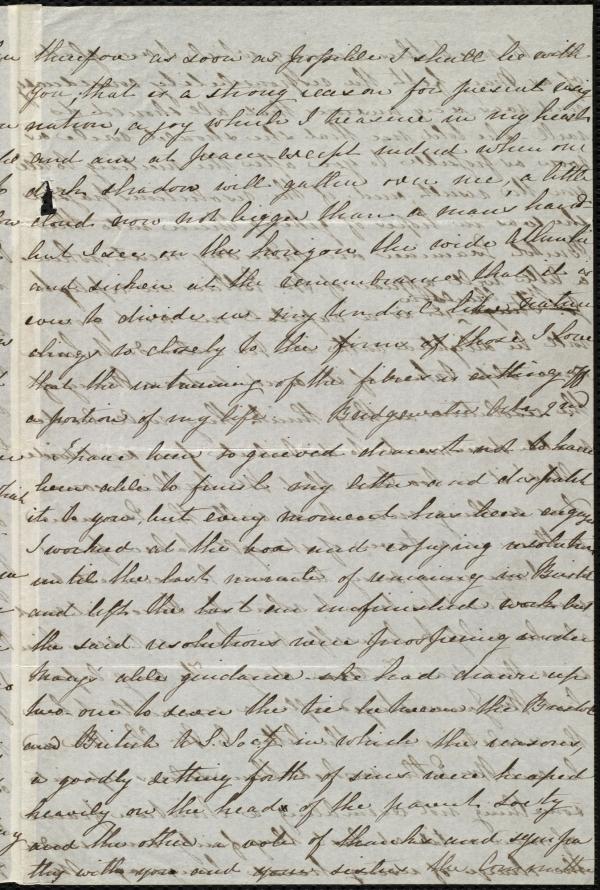 therefore as soon as possible I shall be with
you, that is a strong reason for present resig
nation, a joy which I treasure in my heart
and am at peace except indeed when one
dark shadow will gather over me, a little
cloud now not bigger than a man's hand
but I see on the horizon the wide Atlantic
and sicken at the remembrance that it is
ever to divide us my tendril like nature
clings so closely to the firm of those I love
that the untwining of the fibres is cutting off
a portion of my life. Bridgewater Octr 22nd
I have been so grieved dearest not to have
been able to finish my letter and dispatch
it to you but every moment has been engaged
I worked at the box and copying resolutions
until the last minute of remaining in Bristol
and left the last an unfinished work but
the said resolutions were prospering under
Mary's able guidance she had drawn up
two one to sever the tie between the Bristol
and British A S. Socty in which the reasons,
a goodly setting forth of sins were heaped
heavily on the head of the parent Socty
and the other a vote of thanks and sympa
thy with you and your sisters the Committee